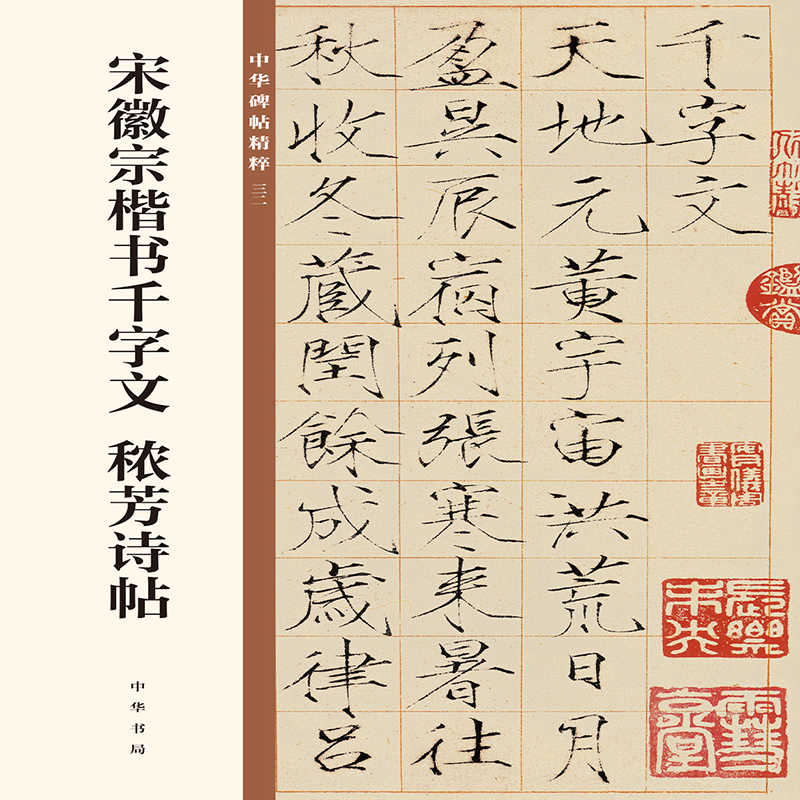 宋徽宗楷书千字文 秾芳诗帖
中华书局
中华碑帖精粹 三二
千字文
天地元黄宇宙洪荒日月
盈昃辰宿列張寒来暑往
秋收冬蔵閏餘成歳律吕
鑑賞
長樂未央